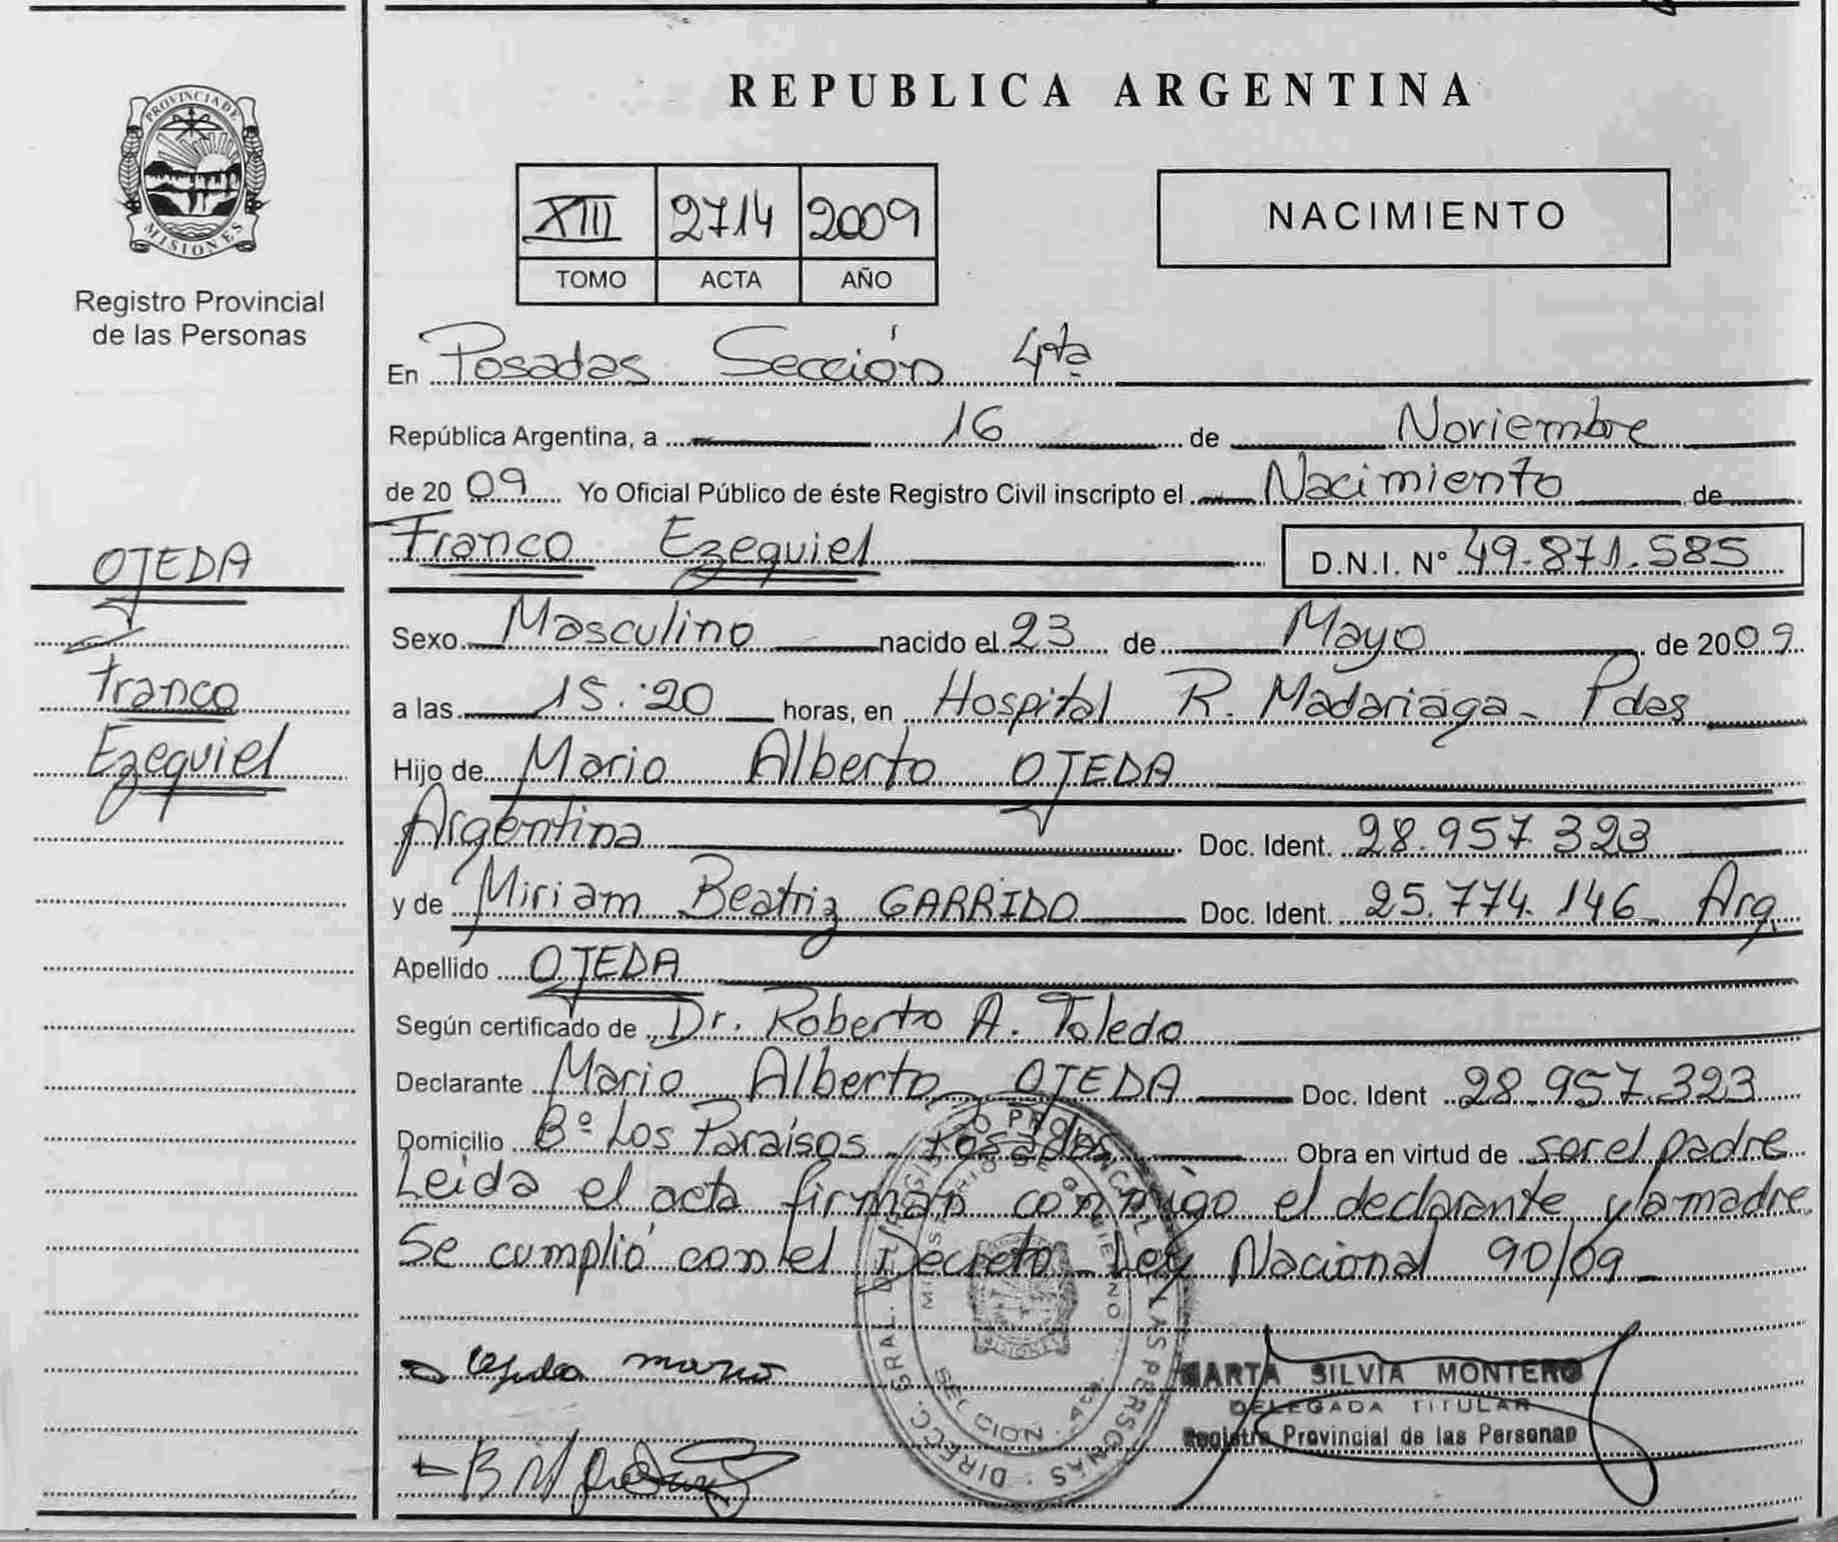 PROVINCIA DE
MISIONES
Registro Provincial
de las Personas
OJEDA
Franco
Ezequiel
REPUBLICA ARGENTINA
XIII 2714 2009
TOMO ACTA AÑO
NACIMIENTO
En Posadas Sección 4ta
República Argentina, a 16 de Noviembre
de 2009 Yo Oficial Público de éste Registro Civil inscripto el Nacimiento de
Franco Ezequiel D.N.I. Nº 49.871.585
Sexo Masculino nacido el 23 de Mayo de 2009
a las 15:20 horas, en Hospital R. Madariaga - Pdas
Hijo de Mario Alberto OJEDA
Argentina Doc. Ident. 28.957.323
y de Miriam Beatriz GARRIDO Doc. Ident. 25.774.146 Arg.
Apellido OJEDA
Según certificado de Dr. Roberto A. Toledo
Declarante Mario Alberto OJEDA Doc. Ident 28.957.323
Domicilio Bº Los Paraisos - Posadas Obra en virtud de ser el padre
Leida el acta firman conmigo el declarante y la madre
Se cumplió con el Decreto Ley Nacional 90/09
Ojeda mario
MARTA SILVIA MONTERO
DELEGADA TITULAR
Registro Provincial de las Personas
DIRECC. GRAL. DEL REGISTRO PROVINCIAL DE LAS PERSONAS
MINISTERIO DE GOBIERNO
SECCION 4ta.